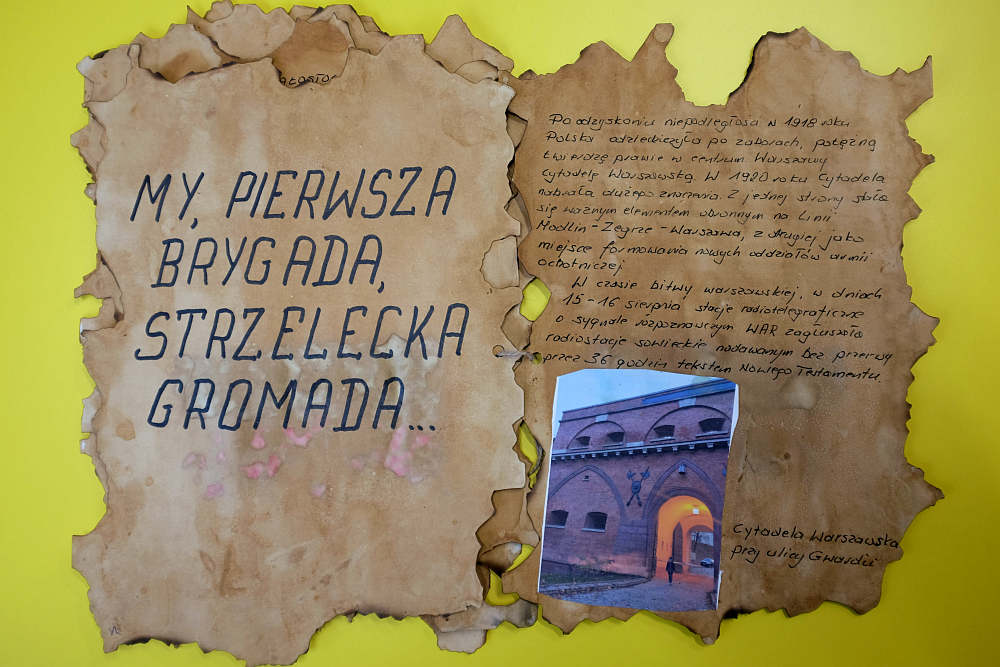 MY, PIERWSZA
BRYGADA,
STRZELECKA
GROMADA...
Po odzyskaniu niepodległości w 1918 roku
Polska odziedziczyła po zaborach, potężną
twierdzę prawie w centrum Warszawy
Cytadelę Warszawską. W 1920 roku Cytadela
nabrała dużego znaczenia. Z jednej strony stała
się ważnym elementem obronnym na Linii
Modlin-Zegrze-Warszawa, z drugiej jako
miejsce formowania nowych oddziałów armii
ochotniczej.
W czasie bitwy warszawskiej, w dniach
15-16 sierpnia stacje radiotelegraficzne
o sygnale rozpoznawczym WAR zagłuszała
radiostacje sowieckie nadawanym bez przerwy
przez 36 godzin tekstem Nowego Testamentu.
Cytadela Warszawska
przy ulicy Gwardii